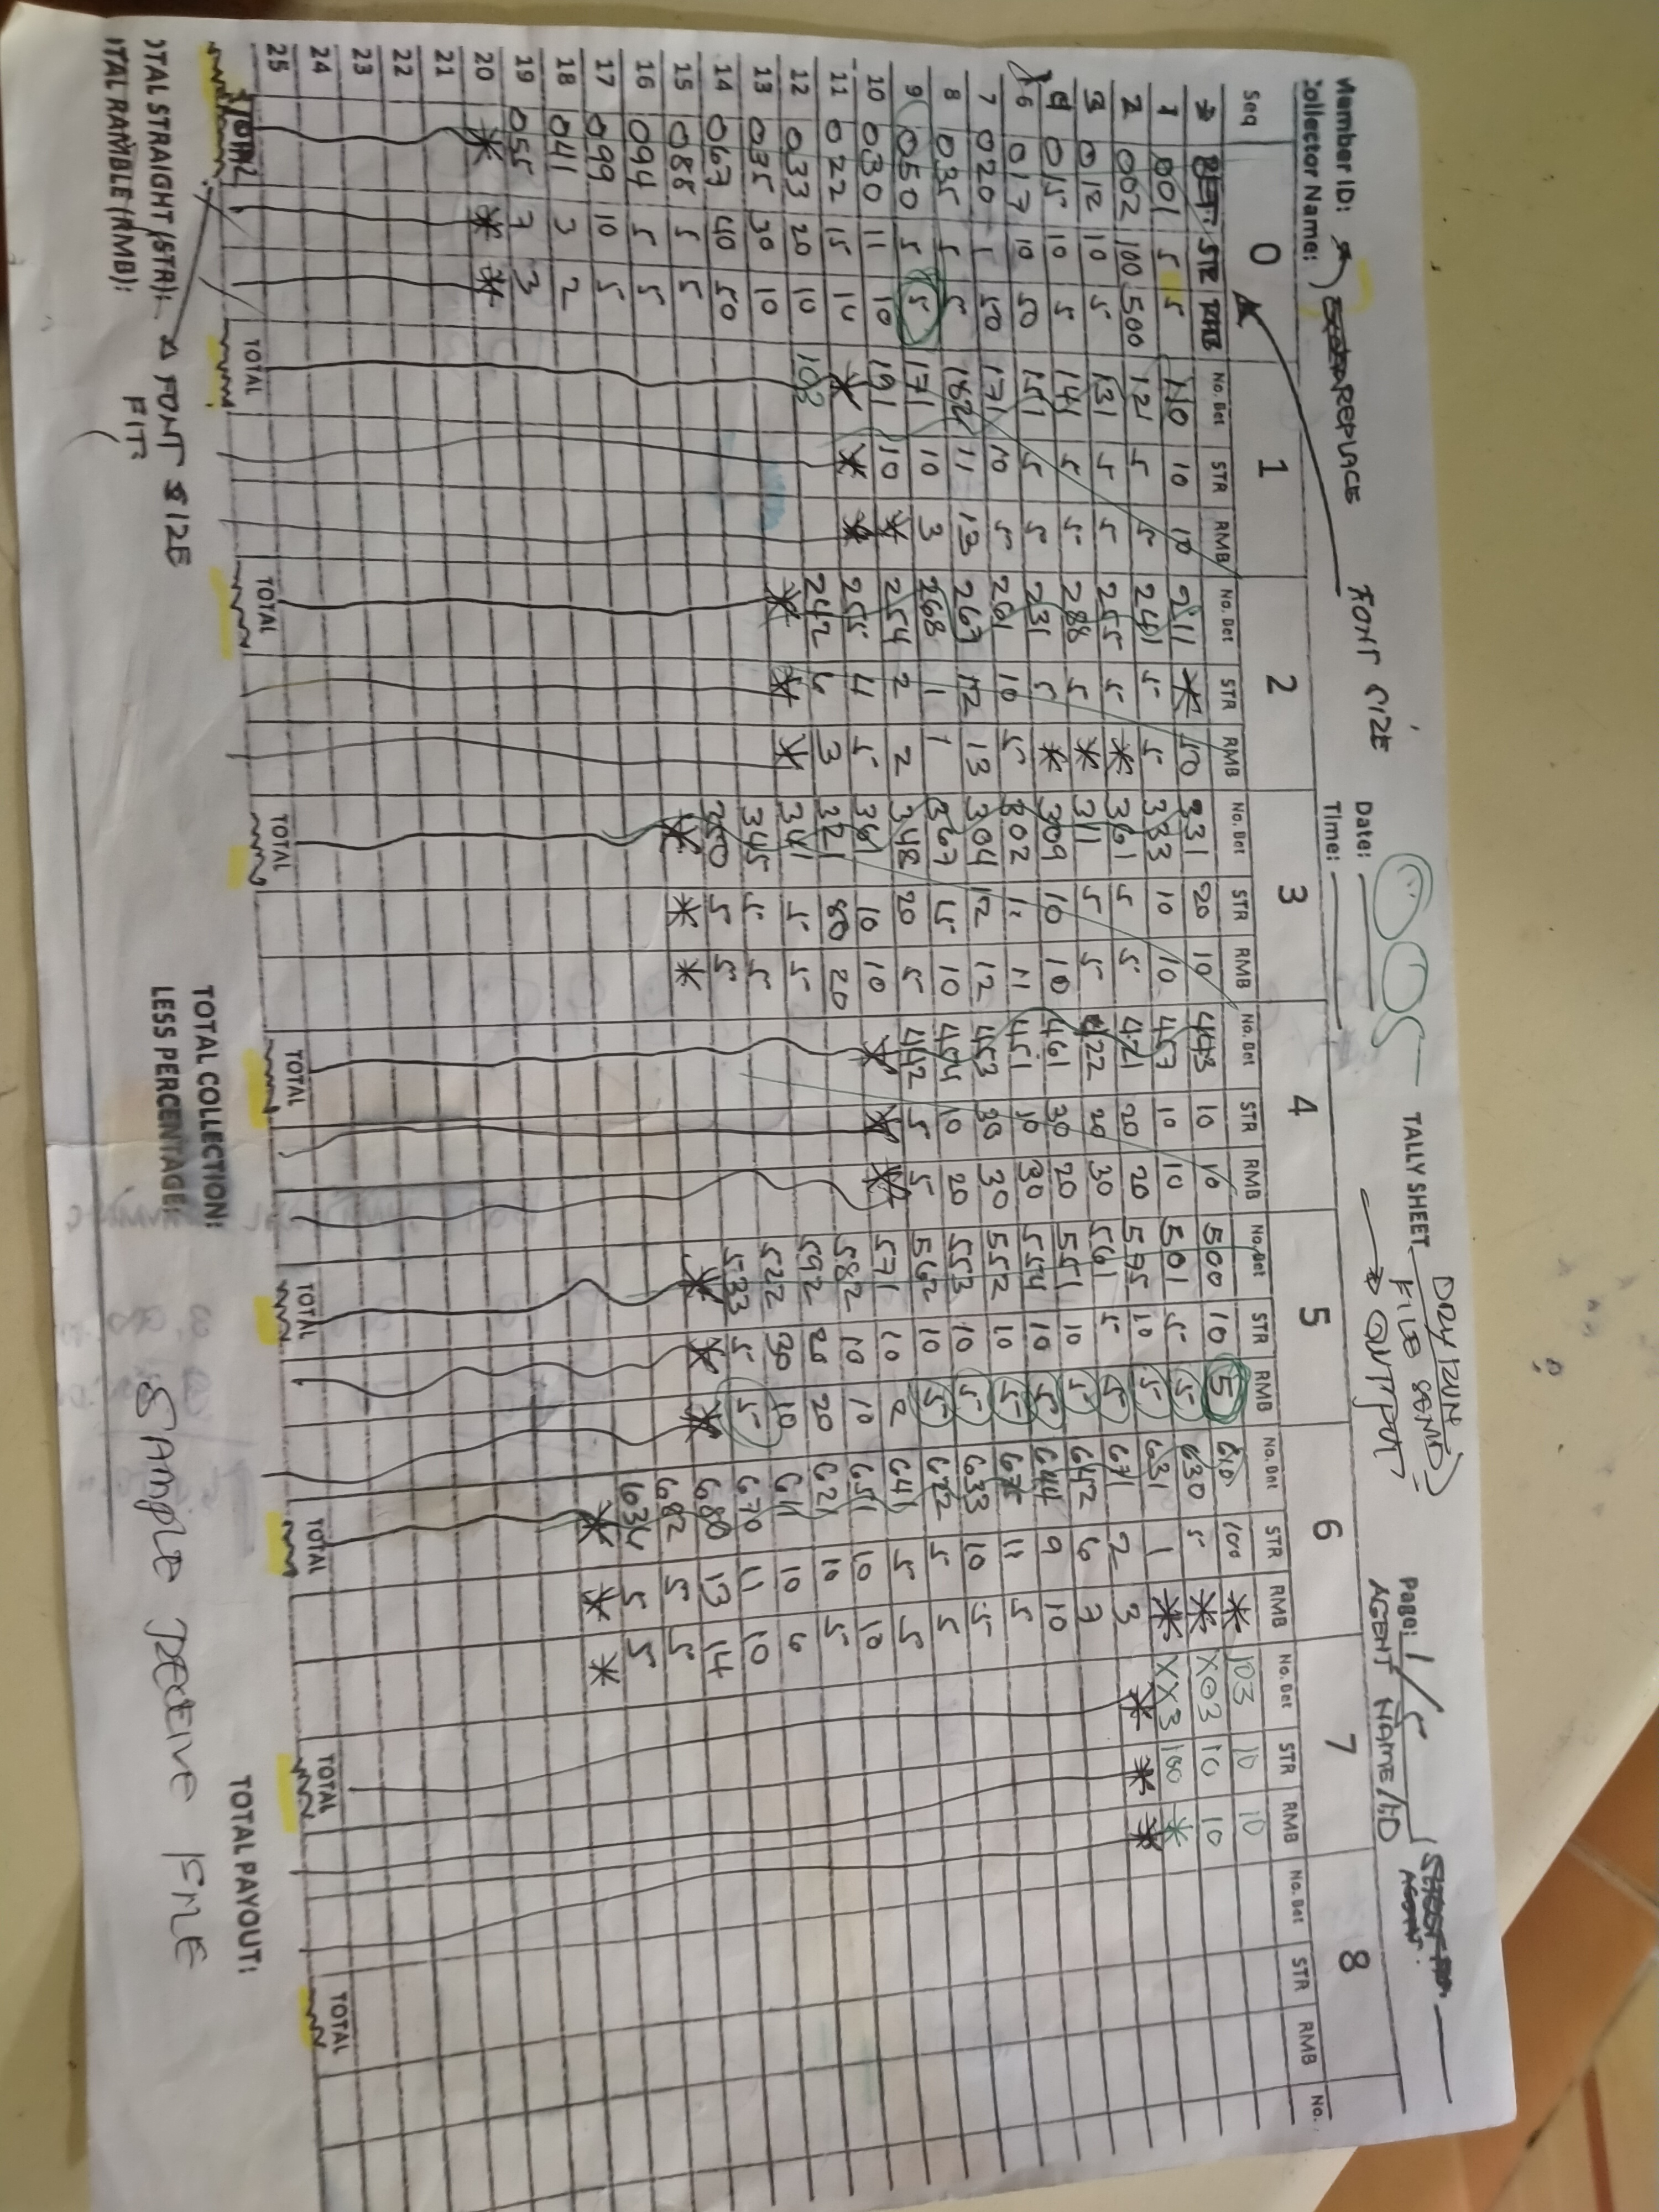 Member ID: REPLACE FONT SIZE Date: TALLY SHEET DRY RUN Page: 1
Collector Name: Time: FILE SEND) AGENT NAME/ID
OUTPUT AGENT
Seq 0 1 2 3 4 5 6 7 8
BET STR RMB No. Bet STR RMB No. Bet STR RMB No. Bet STR RMB No. Bet STR RMB No. Bet STR RMB No. Bet STR RMB No. Bet STR RMB No. Bet STR RMB No.
1 001 5 5 110 10 10 211 * 10 331 20 10 443 10 10 500 10 5 610 100 * 103 10 10
2 002 100 500 121 5 5 241 5 5 333 10 10 457 10 10 501 5 5 630 5 * X03 10 10
3 012 10 5 131 5 5 255 5 * 361 5 5 421 20 20 575 10 5 631 1 * XX3 100 *
4 015 10 5 141 5 5 288 5 * 311 5 5 422 20 30 561 5 5 671 2 3 * * *
6 017 10 50 151 5 5 231 5 * 309 10 10 461 30 20 551 10 5 642 6 3
7 020 5 50 171 10 5 201 10 5 302 11 11 451 10 30 554 10 5 644 9 10
8 035 5 5 182 11 13 267 12 13 304 12 12 453 30 30 552 10 5 11 5
9 050 5 5 171 10 3 268 1 1 367 5 10 454 10 20 553 10 5 633 10 5
10 030 11 10 191 10 * 254 2 2 348 20 5 442 5 5 562 10 5 672 5 5
11 022 15 * * * 255 4 5 361 10 10 * * * 571 10 2 641 5 5
12 033 20 10 103 242 6 3 321 80 20 582 10 10 651 10 10
13 035 30 10 * * * 341 5 5 592 20 20 621 10 5
14 067 40 50 345 5 5 522 30 10 611 10 6
15 088 5 5 350 5 5 533 5 5 670 11 10
16 094 5 5 * * * * * * 680 13 14
17 099 10 5 682 5 5
18 041 3 2 634 5 5
19 055 3 3 * * *
20 * * *
21
22
23
24
25
TOTAL TOTAL TOTAL TOTAL TOTAL TOTAL TOTAL TOTAL TOTAL
TOTAL STRAIGHT (STR): FONT SIZE TOTAL COLLECTION: TOTAL PAYOUT:
TAL RAMBLE (RMB): FIT? LESS PERCENTAGE: SAMPLE RECEIVE FILE